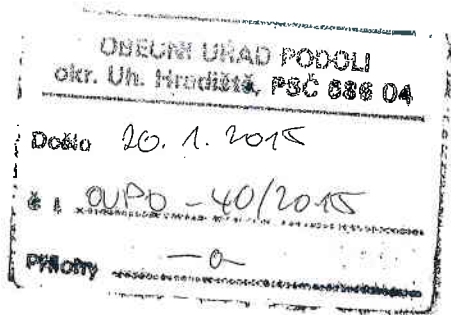 OBECNÍ ÚŘAD PODOLÍ
okr. Uh. Hradiště, PSČ 686 04
Došlo 20. 1. 2015
č. j. OUPO - 40/2015
Přílohy —0—